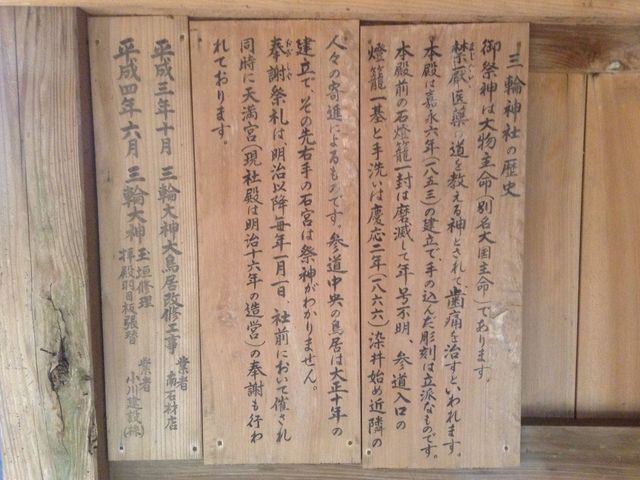 三輪神社の歴史
御祭神は大物主命（別名大国主命）であります。
禁厭医薬の道を教える神とされて、歯痛を治すといわれます。
まじない
本殿は嘉永六年（一八五三）の建立で、手の込んだ彫刻は立派なものです。
本殿前の石燈籠一封は磨滅して年号不明、参道入口の
燈籠一基と手洗いは慶応二年（一八六六）染井始め近隣の
人々の寄進によるものです。参道中央の鳥居は大正十年の
建立で、その先右手の石宮は祭神がわかりません。
奉謝祭礼は、明治以降毎年一月一日、社前において催され
おびしゃ
同時に天満宮（現社殿は明治十六年の造営）の奉謝も行わ
れております。
平成三年十月 三輪大神大鳥居改修工事 業者 南石材店
平成四年六月 三輪大神 玉垣修理 拝殿羽目板張替 業者 小川建設（株）